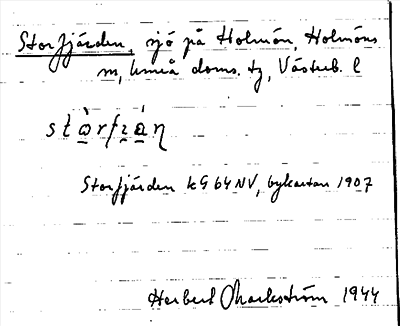 Storfjärden, sjö på Holmön, Holmöns
sn, Umeå doms. tg, Västerb. l
Storfjärden kG 64 NV, bykartan 1907
Herbert Markström 1944